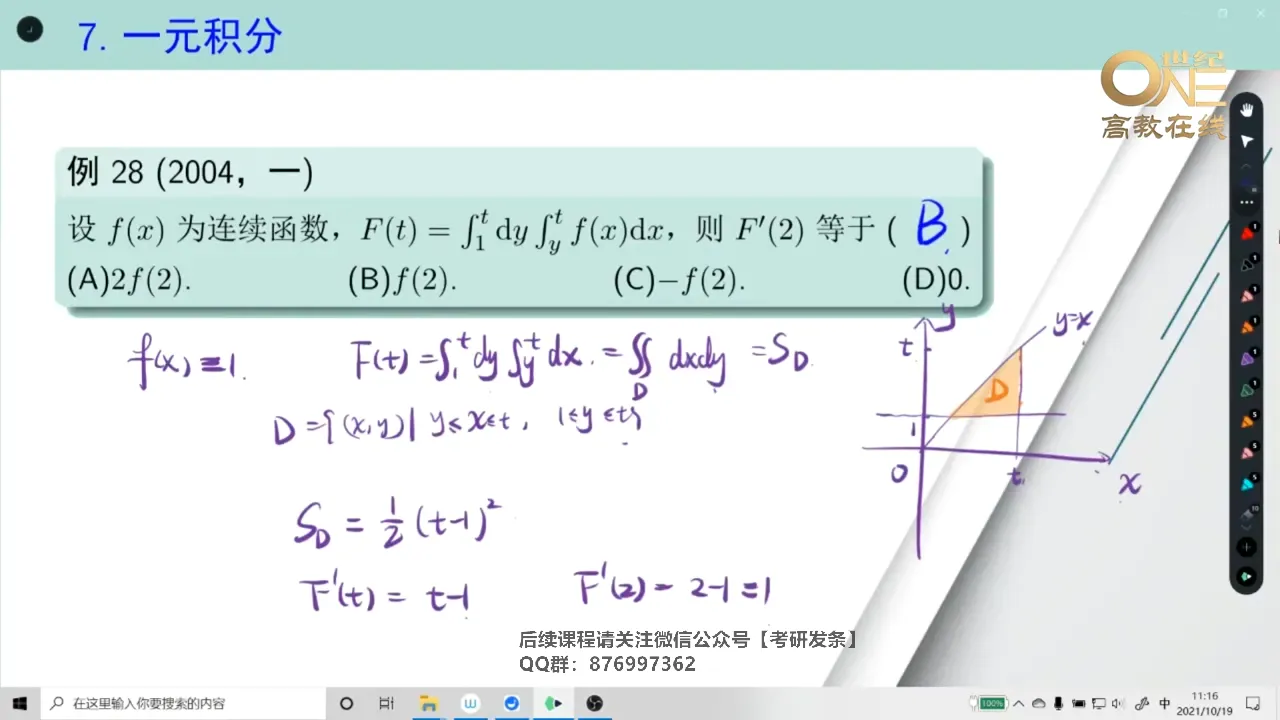 7. 一元积分
世纪
ONE
高教在线
例 28 (2004，一)
设 f(x) 为连续函数，F(t) = ∫₁ᵗ dy ∫ᵧᵗ f(x)dx，则 F′(2) 等于 ( B )
(A)2f(2). (B)f(2). (C)−f(2). (D)0.
f(x) ≡ 1.
F(t) = ∫₁ᵗ dy ∫ᵧᵗ dx. = ∬_D dxdy = S_D.
D = {(x,y) | y ≤ x ≤ t, 1 ≤ y ≤ t}
S_D = 1/2 (t-1)²
F′(t) = t-1
F′(2) = 2-1 = 1
y
y=x
t
D
1
O
t
x
后续课程请关注微信公众号【考研发条】
QQ群：876997362
在这里输入你要搜索的内容
100%
中
11:16
2021/10/19